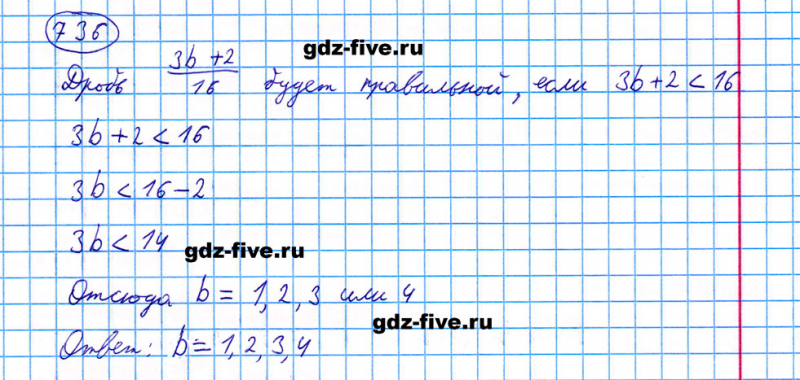 736
gdz-five.ru
Дробь (3b+2)/16 будет правильной, если 3b+2<16
3b+2<16
3b<16-2
3b<14
gdz-five.ru
Отсюда b=1,2,3 или 4
gdz-five.ru
Ответ: b=1,2,3,4